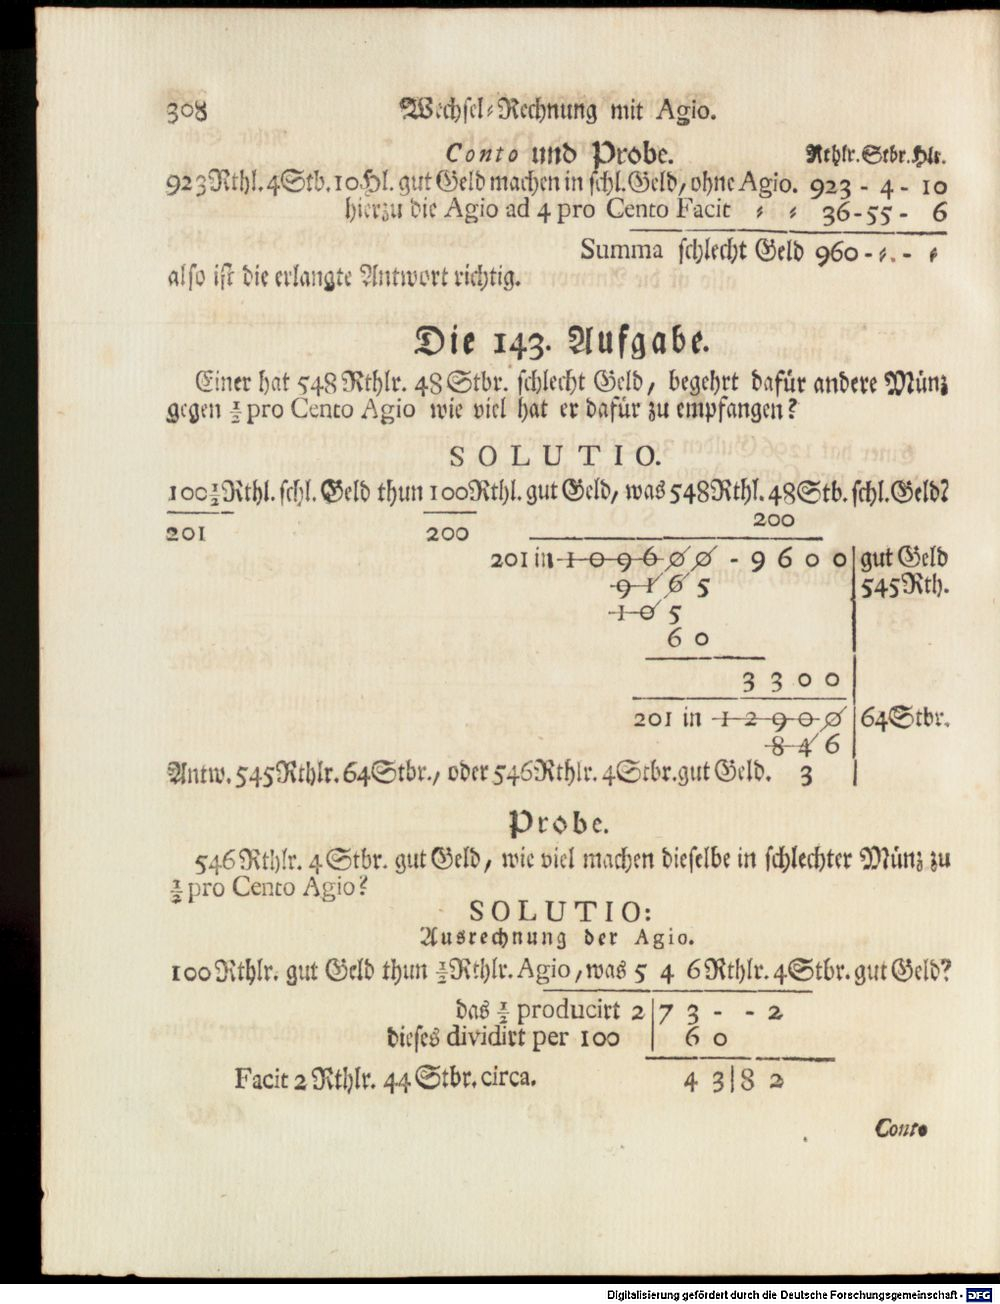 308 Wechsel-Rechnung mit Agio.
Conto und Probe. Rthlr. Stbr. Hlr.
923 Rthl. 4 Stb. 10 Hl. gut Geld machen in schl. Geld, ohne Agio. 923 - 4 - 10
hierzu die Agio ad 4 pro Cento Facit = = 36-55 - 6
Summa schlecht Geld 960 - =. - =
also ist die erlangte Antwort richtig.
Die 143. Aufgabe.
Einer hat 548 Rthlr. 48 Stbr. schlecht Geld, begehrt dafür andere Münz
gegen ½ pro Cento Agio wie viel hat er dafür zu empfangen?
SOLUTIO.
100½ Rthl. schl. Geld thun 100 Rthl. gut Geld, was 548 Rthl. 48 Stb. schl. Geld?
201 200 200
201 in 109600 - 9600 | gut Geld
9165 | 545 Rth.
105
60
3300
201 in 12900 | 64 Stbr.
846
Antw. 545 Rthlr. 64 Stbr., oder 546 Rthlr. 4 Stbr. gut Geld. 3 |
Probe.
546 Rthlr. 4 Stbr. gut Geld, wie viel machen dieselbe in schlechter Münz zu
½ pro Cento Agio?
SOLUTIO:
Ausrechnung der Agio.
100 Rthlr. gut Geld thun ½ Rthlr. Agio, was 5 4 6 Rthlr. 4 Stbr. gut Geld?
das ½ producirt 2 | 7 3 - - 2
dieses dividirt per 100 | 6 0
Facit 2 Rthlr. 44 Stbr. circa. 4 3 | 8 2
Conto
Digitalisierung gefördert durch die Deutsche Forschungsgemeinschaft - DFG